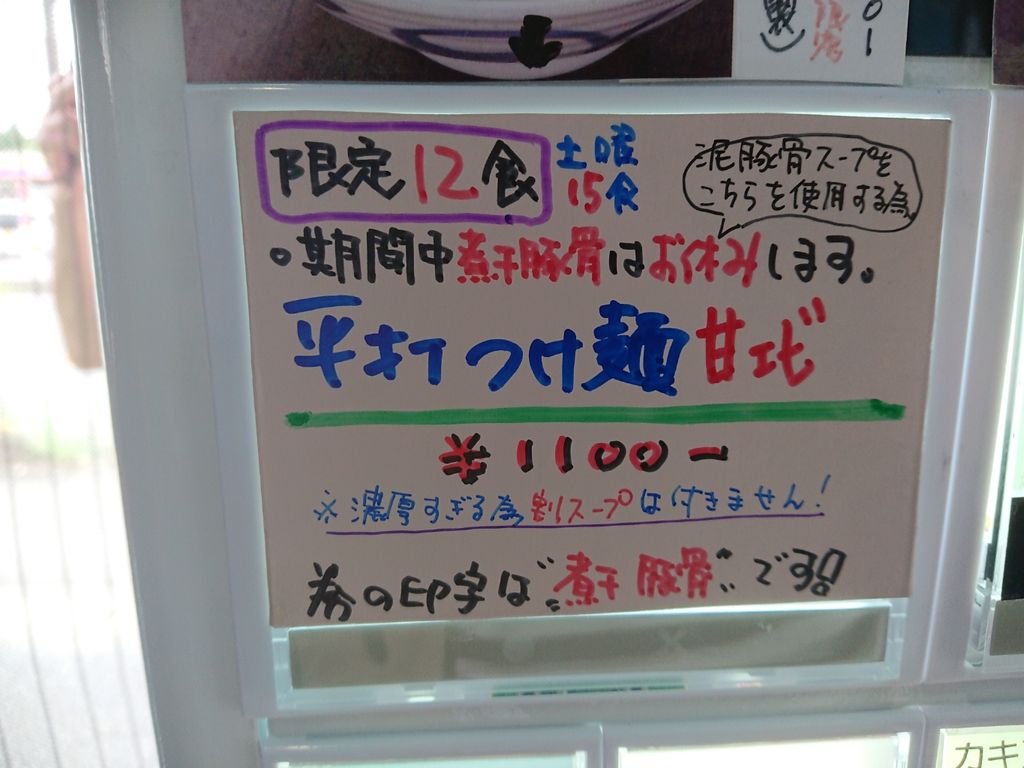 製)
01
限定12食
土曜
15食
泥豚骨スープを
こちらを使用する為
。期間中煮干豚骨はお休みします。
平打つけ麺 甘エビ
※1100ー
※濃厚すぎる為割スープは付きません!
券の印字は"煮干豚骨"です!!
カキ